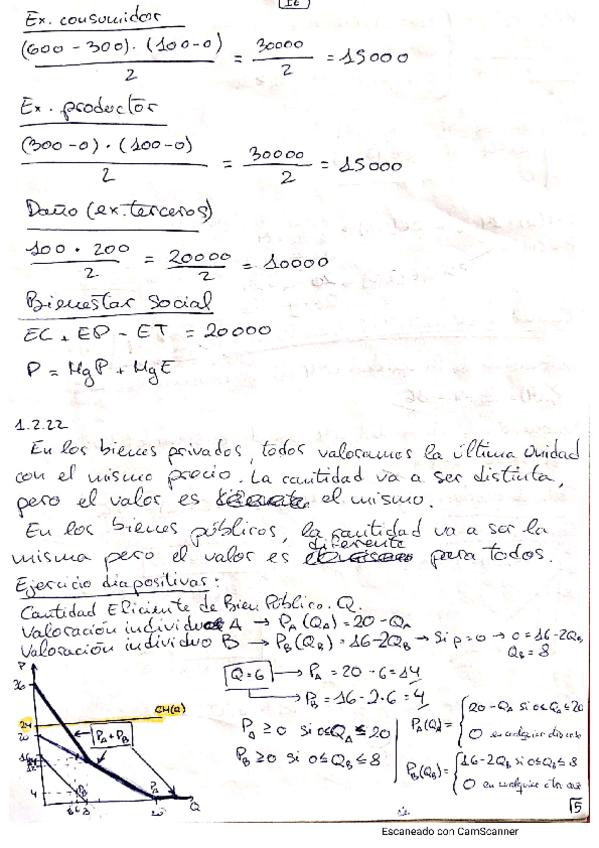 12
Ex. consumidor
(600 - 300) · (100-0) / 2 = 30000 / 2 = 15000
Ex. productor
(300-0) · (100-0) / 2 = 30000 / 2 = 15000
Daño (ex. terceros)
100 · 200 / 2 = 20000 / 2 = 10000
Bienestar Social
EC + EP - ET = 20000
P = MgP + MgE
1.2.22
En los bienes privados, todos valoramos la última unidad
con el mismo precio. La cantidad va a ser distinta,
pero el valor es el mismo.
En los bienes públicos, la cantidad va a ser la
misma pero el valor es diferente para todos.
Ejercicio diapositivas:
Cantidad Eficiente de Bien Público. Q.
Valoración individuo A → PA (QA) = 20 - QA
Valoración individuo B → PB (QB) = 16-2QB → Si p=0 → 0=16-2QB
QB = 8
Q=6 → PA = 20 - 6 = 14
→ PB = 16 - 2·6 = 4
PA ≥ 0 si 0≤QA≤20
PB ≥ 0 si 0≤QB≤8
PA(QA) = { 20-QA si 0≤QA≤20
0 en cualquier otro caso
PB(QB) = { 16-2QB si 0≤QB≤8
0 en cualquier otro caso
P
36
24
CM(Q)
20
PA+PB
16
4
PB
PA
6 8
20
Q
15
Escaneado con CamScanner